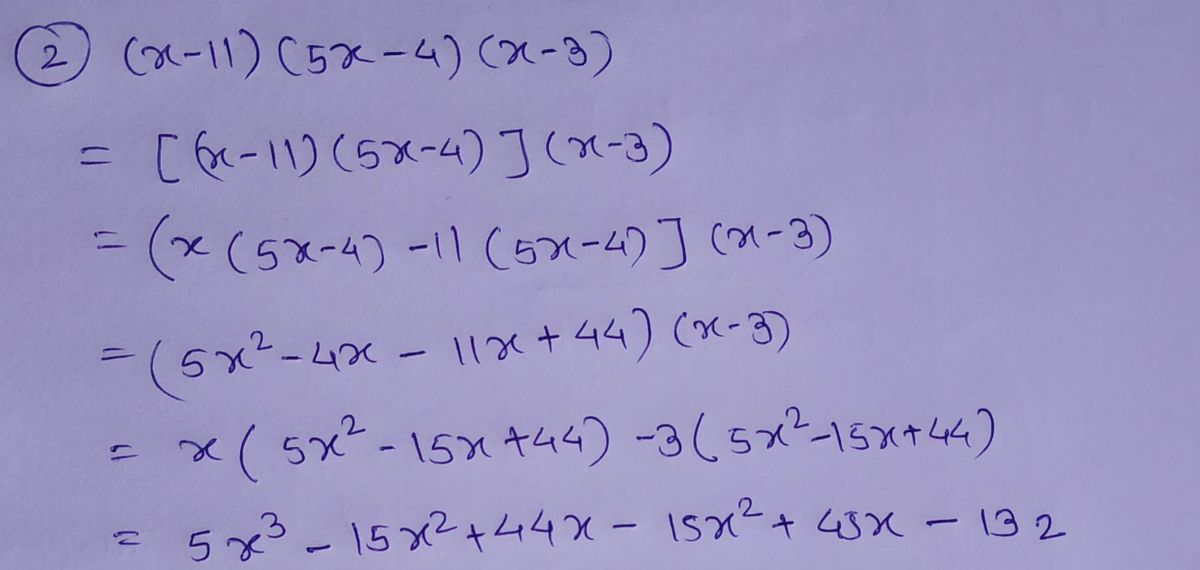 ② (x-11) (5x-4) (x-3)
= [(x-11) (5x-4)] (x-3)
= (x (5x-4) -11 (5x-4)] (x-3)
= (5x² - 4x - 11x + 44) (x-3)
= x (5x² - 15x + 44) -3 (5x² - 15x + 44)
= 5x³ - 15x² + 44x - 15x² + 45x - 132